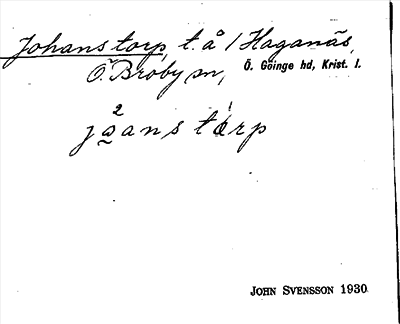 Johanstorp, t. å / Haganäs,
Ö. Broby sn, Ö. Göinge hd, Krist. l.
2
jo̰anstorp
JOHN SVENSSON 1930.